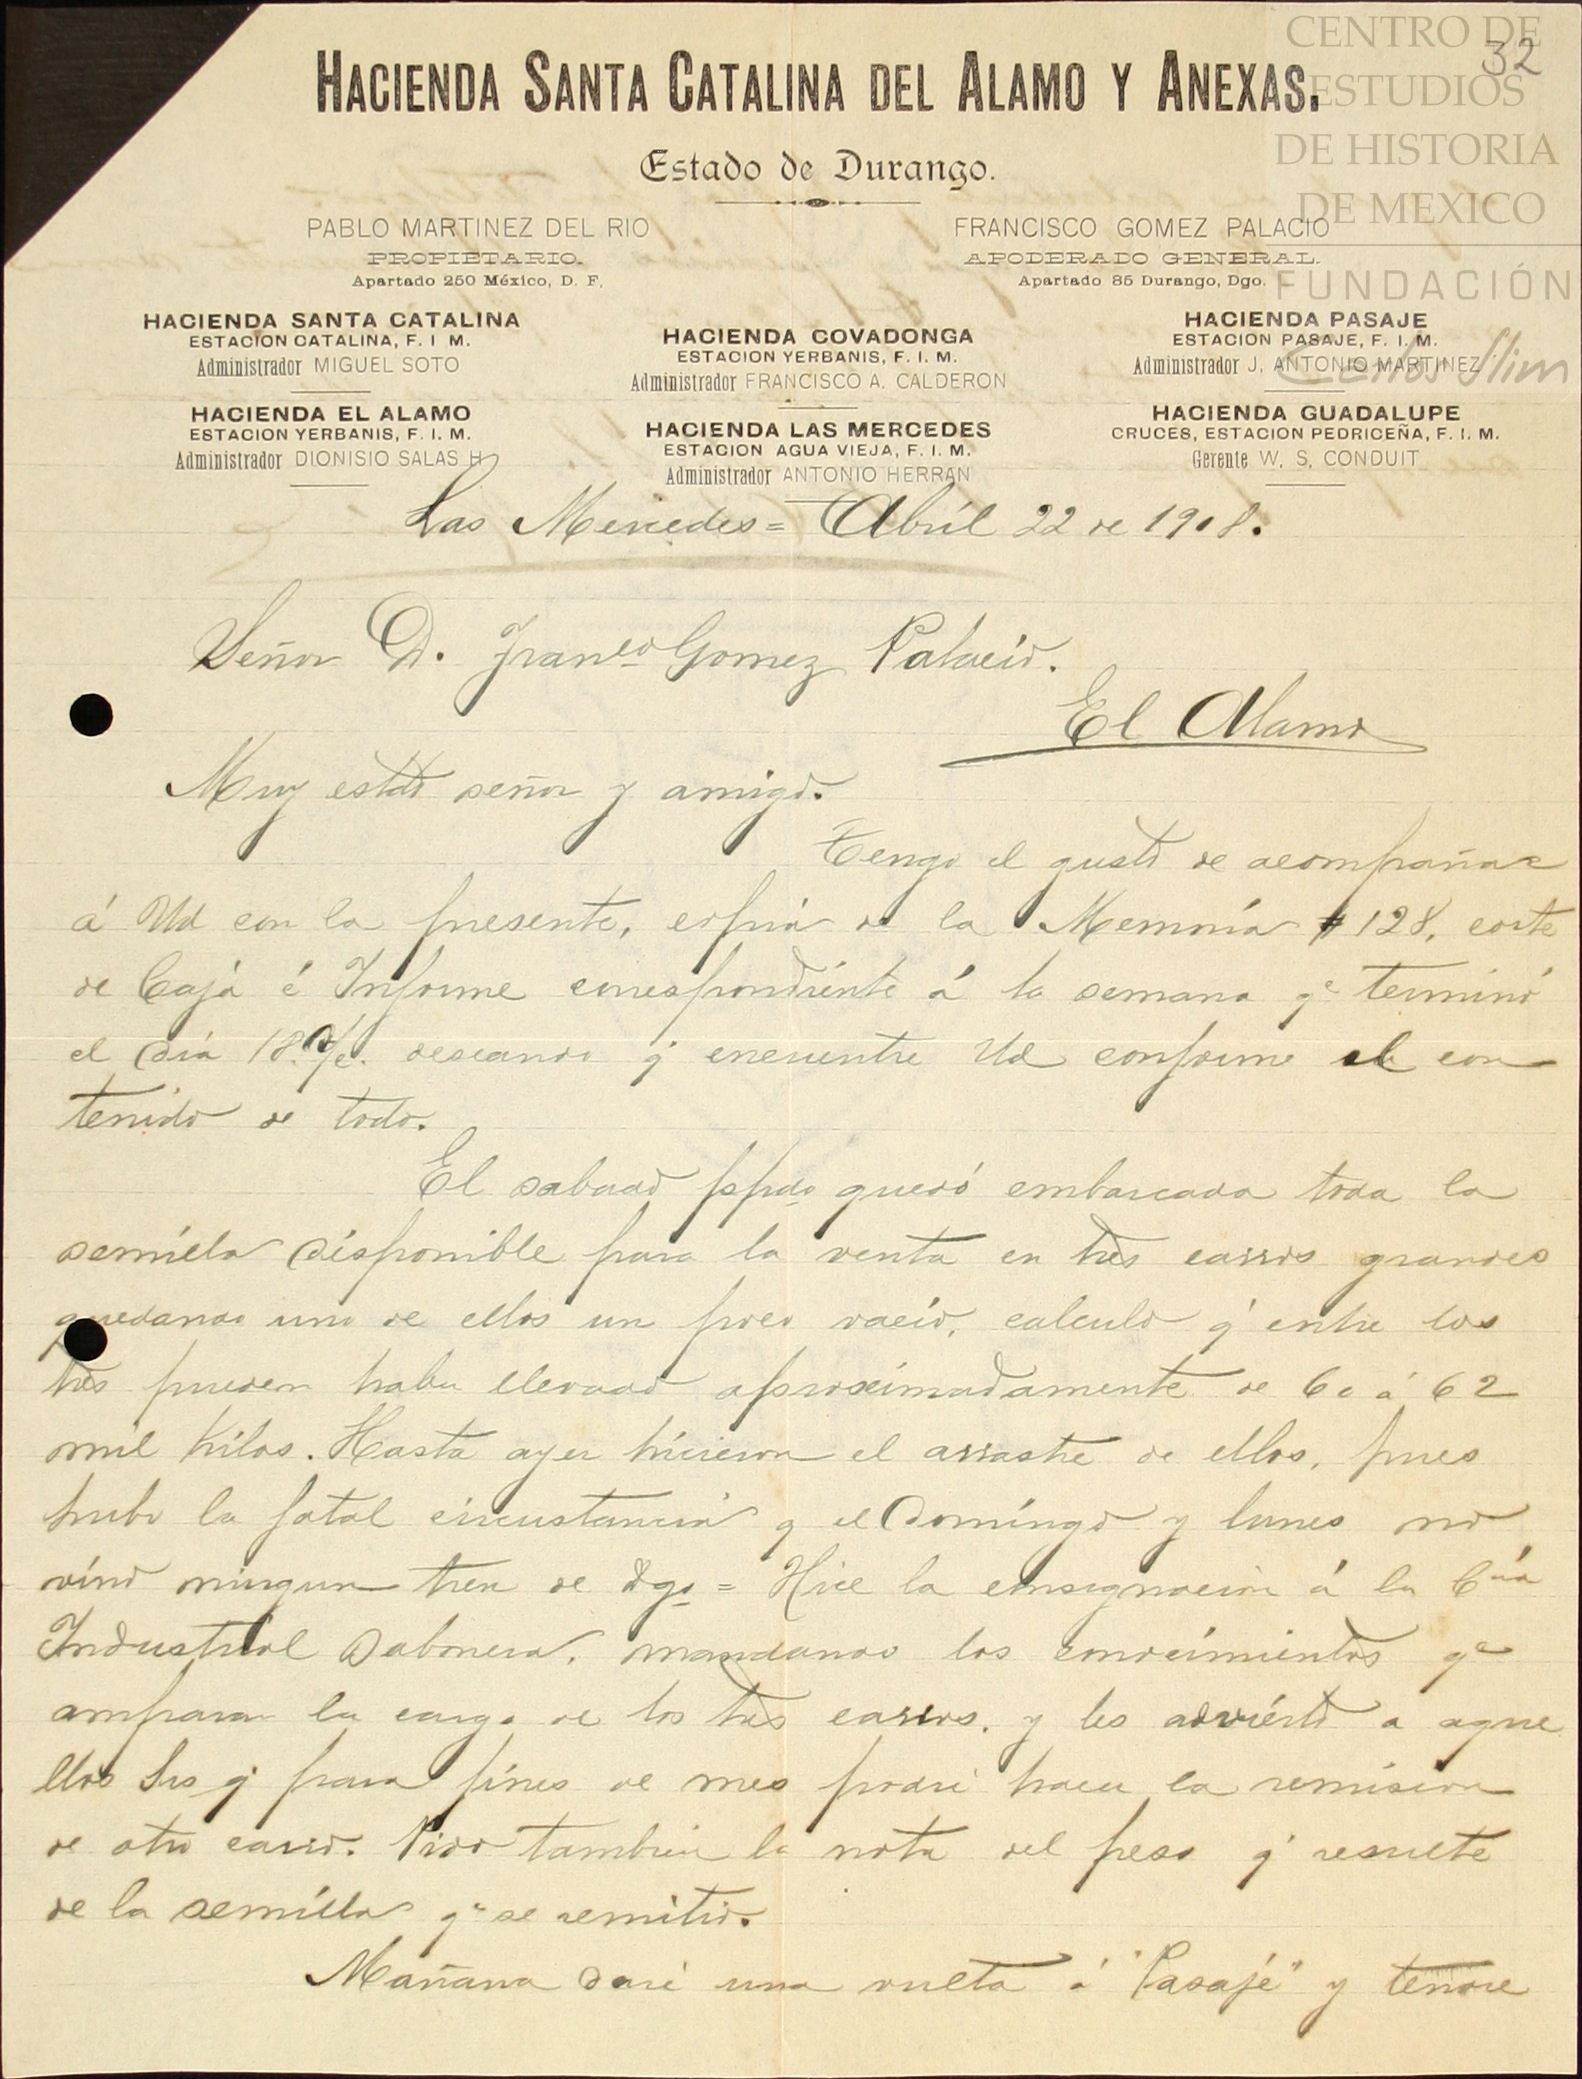 CENTRO DE
ESTUDIOS
DE HISTORIA
DE MEXICO
FUNDACIÓN
Carlos Slim
32
HACIENDA SANTA CATALINA DEL ALAMO Y ANEXAS.
Estado de Durango.
PABLO MARTINEZ DEL RIO
PROPIETARIO.
Apartado 250 México, D. F.
FRANCISCO GOMEZ PALACIO
APODERADO GENERAL.
Apartado 85 Durango, Dgo.
HACIENDA SANTA CATALINA
ESTACION CATALINA, F. I M.
Administrador MIGUEL SOTO
HACIENDA COVADONGA
ESTACION YERBANIS, F. I. M.
Administrador FRANCISCO A. CALDERON
HACIENDA PASAJE
ESTACION PASAJE, F. I. M.
Administrador J. ANTONIO MARTINEZ
HACIENDA EL ALAMO
ESTACION YERBANIS, F. I. M.
Administrador DIONISIO SALAS H
HACIENDA LAS MERCEDES
ESTACION AGUA VIEJA, F. I. M.
Administrador ANTONIO HERRAN
HACIENDA GUADALUPE
CRUCES, ESTACION PEDRICEÑA, F. I. M.
Gerente W. S. CONDUIT
Las Mercedes = Abríl 22 de 1908.
Señor D. Franco Gomez Palacio.
El Alamo
Muy estdo señor y amigo.
Tengo el gusto de acompañar
á Ud con la presente, copia de la Memoría # 128, corte
de Caja é Informe correspondiente á la semana qe terminó
el día 18. deseando q' encuentre Ud conforme el con
tenido de todo.
El sabado ppdo quedó embarcada toda la
semilla disponible para la venta en tres carros grandes
quedando uno de ellos un poco vacío, calculo q' entre los
tres pueden haber llevado aproximadamente de 60 á 62
mil kilos. Hasta ayer hicieron el arrastre de ellos, pues
hubo la fatal circustancia q el Domingo y lunes no
vino ningun tren de Dgo = Hice la consignacion á la Cía
Industrial Jabonera, mandando los conocimientos qe
amparan la carga de los tres carros, y les advierto a aque
llos Srs q' para fines de mes podré hacer la remision
de otro carro. Pido tambien la nota del peso q' resulte
de la semilla qe se remitió.
Mañana daré una vuelta á "Pasaje" y tendre